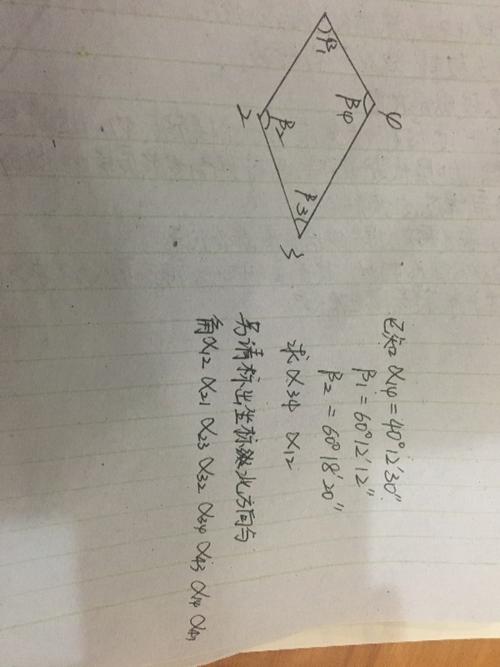 β1
4
β4
2
β2
β3
3
已知 α14=40°12′30″
β1=60°12′12″
β2 = 60°18′20″
求 α34 α12
另请标出坐标纵北方向与
角 α12 α21 α23 α32 α34 α43 α14 α41